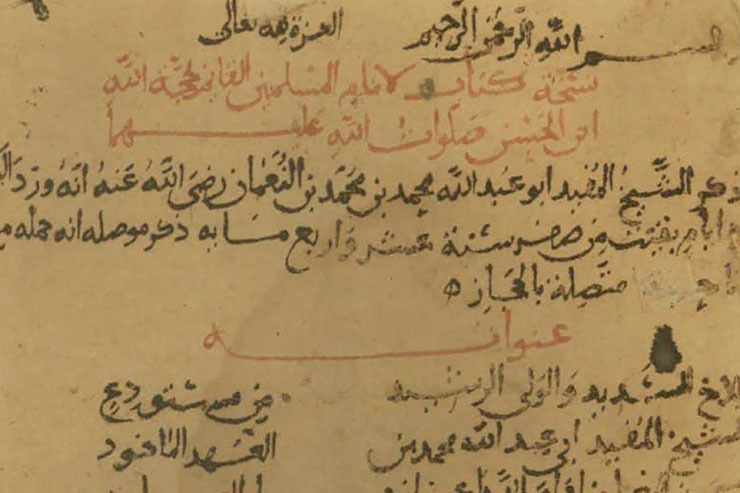 بسم الله الرحمن الرحيم العزة لله تعالى
نسخة كتاب لامام المسلمين القائم لحجة الله
ابن الحسن صلوات الله عليهما
ذكر الشيخ المفيد ابو عبد الله محمد بن محمد بن النعمان رضي الله عنه انه ورد
ايام بقيت من صفر سنة عشر واربع مايه ذكر موصله انه حمله
متصلة بالحجاز
عنوانه
للاخ السديد والولي الرشيد من مستودع
الشيخ المفيد ابي عبد الله محمد بن العهد الماخوذ